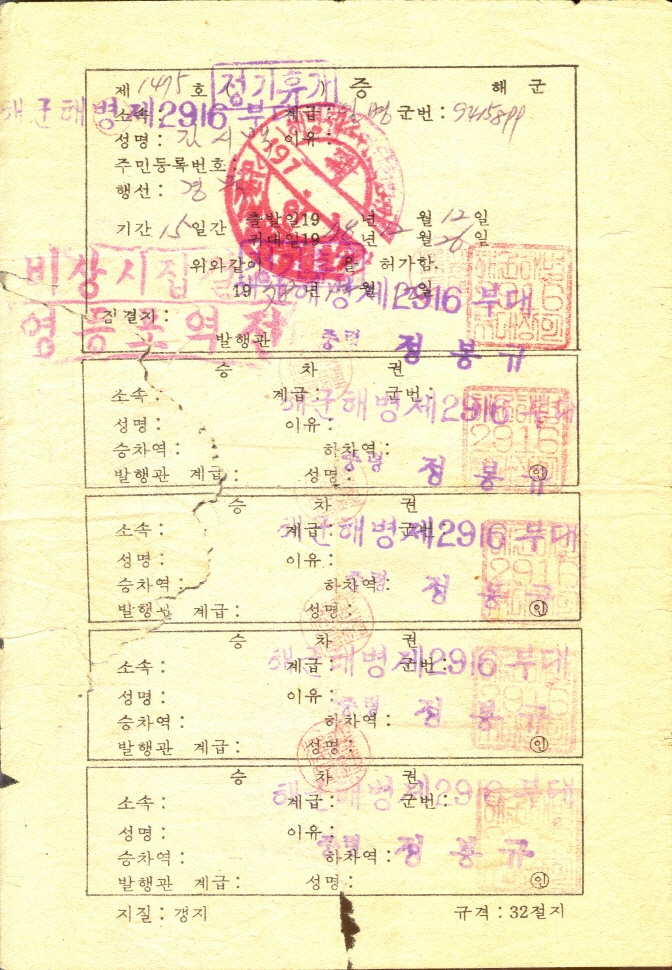 제 1475 호 (정기휴가) 증 해 군
해군해병제2916부
소속: 계급: 군번: 9415899
성명: 이유:
주민등록번호:
행선:
기간 15 일간 출발일19 년 12 월 12 일
귀대일19 년 월 26 일
위와같이 을 허가함.
비상시집결
19 년 월 일
해군해병제2916부대
집결지:
영등포역전
발행관 중령 정봉규
승 차 권
소속: 계급: 군번:
해군해병제2916부대
성명: 이유:
승차역: 하차역:
중령 정봉규
발행관 계급: 성명: 인
승 차 권
소속: 계급: 군번:
해군해병제2916부대
성명: 이유:
승차역: 하차역:
중령 정봉규
발행관 계급: 성명: 인
승 차 권
소속: 계급: 군번:
해군해병제2916부대
성명: 이유:
승차역: 하차역:
중령 정봉규
발행관 계급: 성명: 인
승 차 권
해군해병제2916부대
소속: 계급: 군번:
성명: 이유:
중령 정봉규
승차역: 하차역:
발행관 계급: 성명: 인
지질: 갱지 규격: 32절지